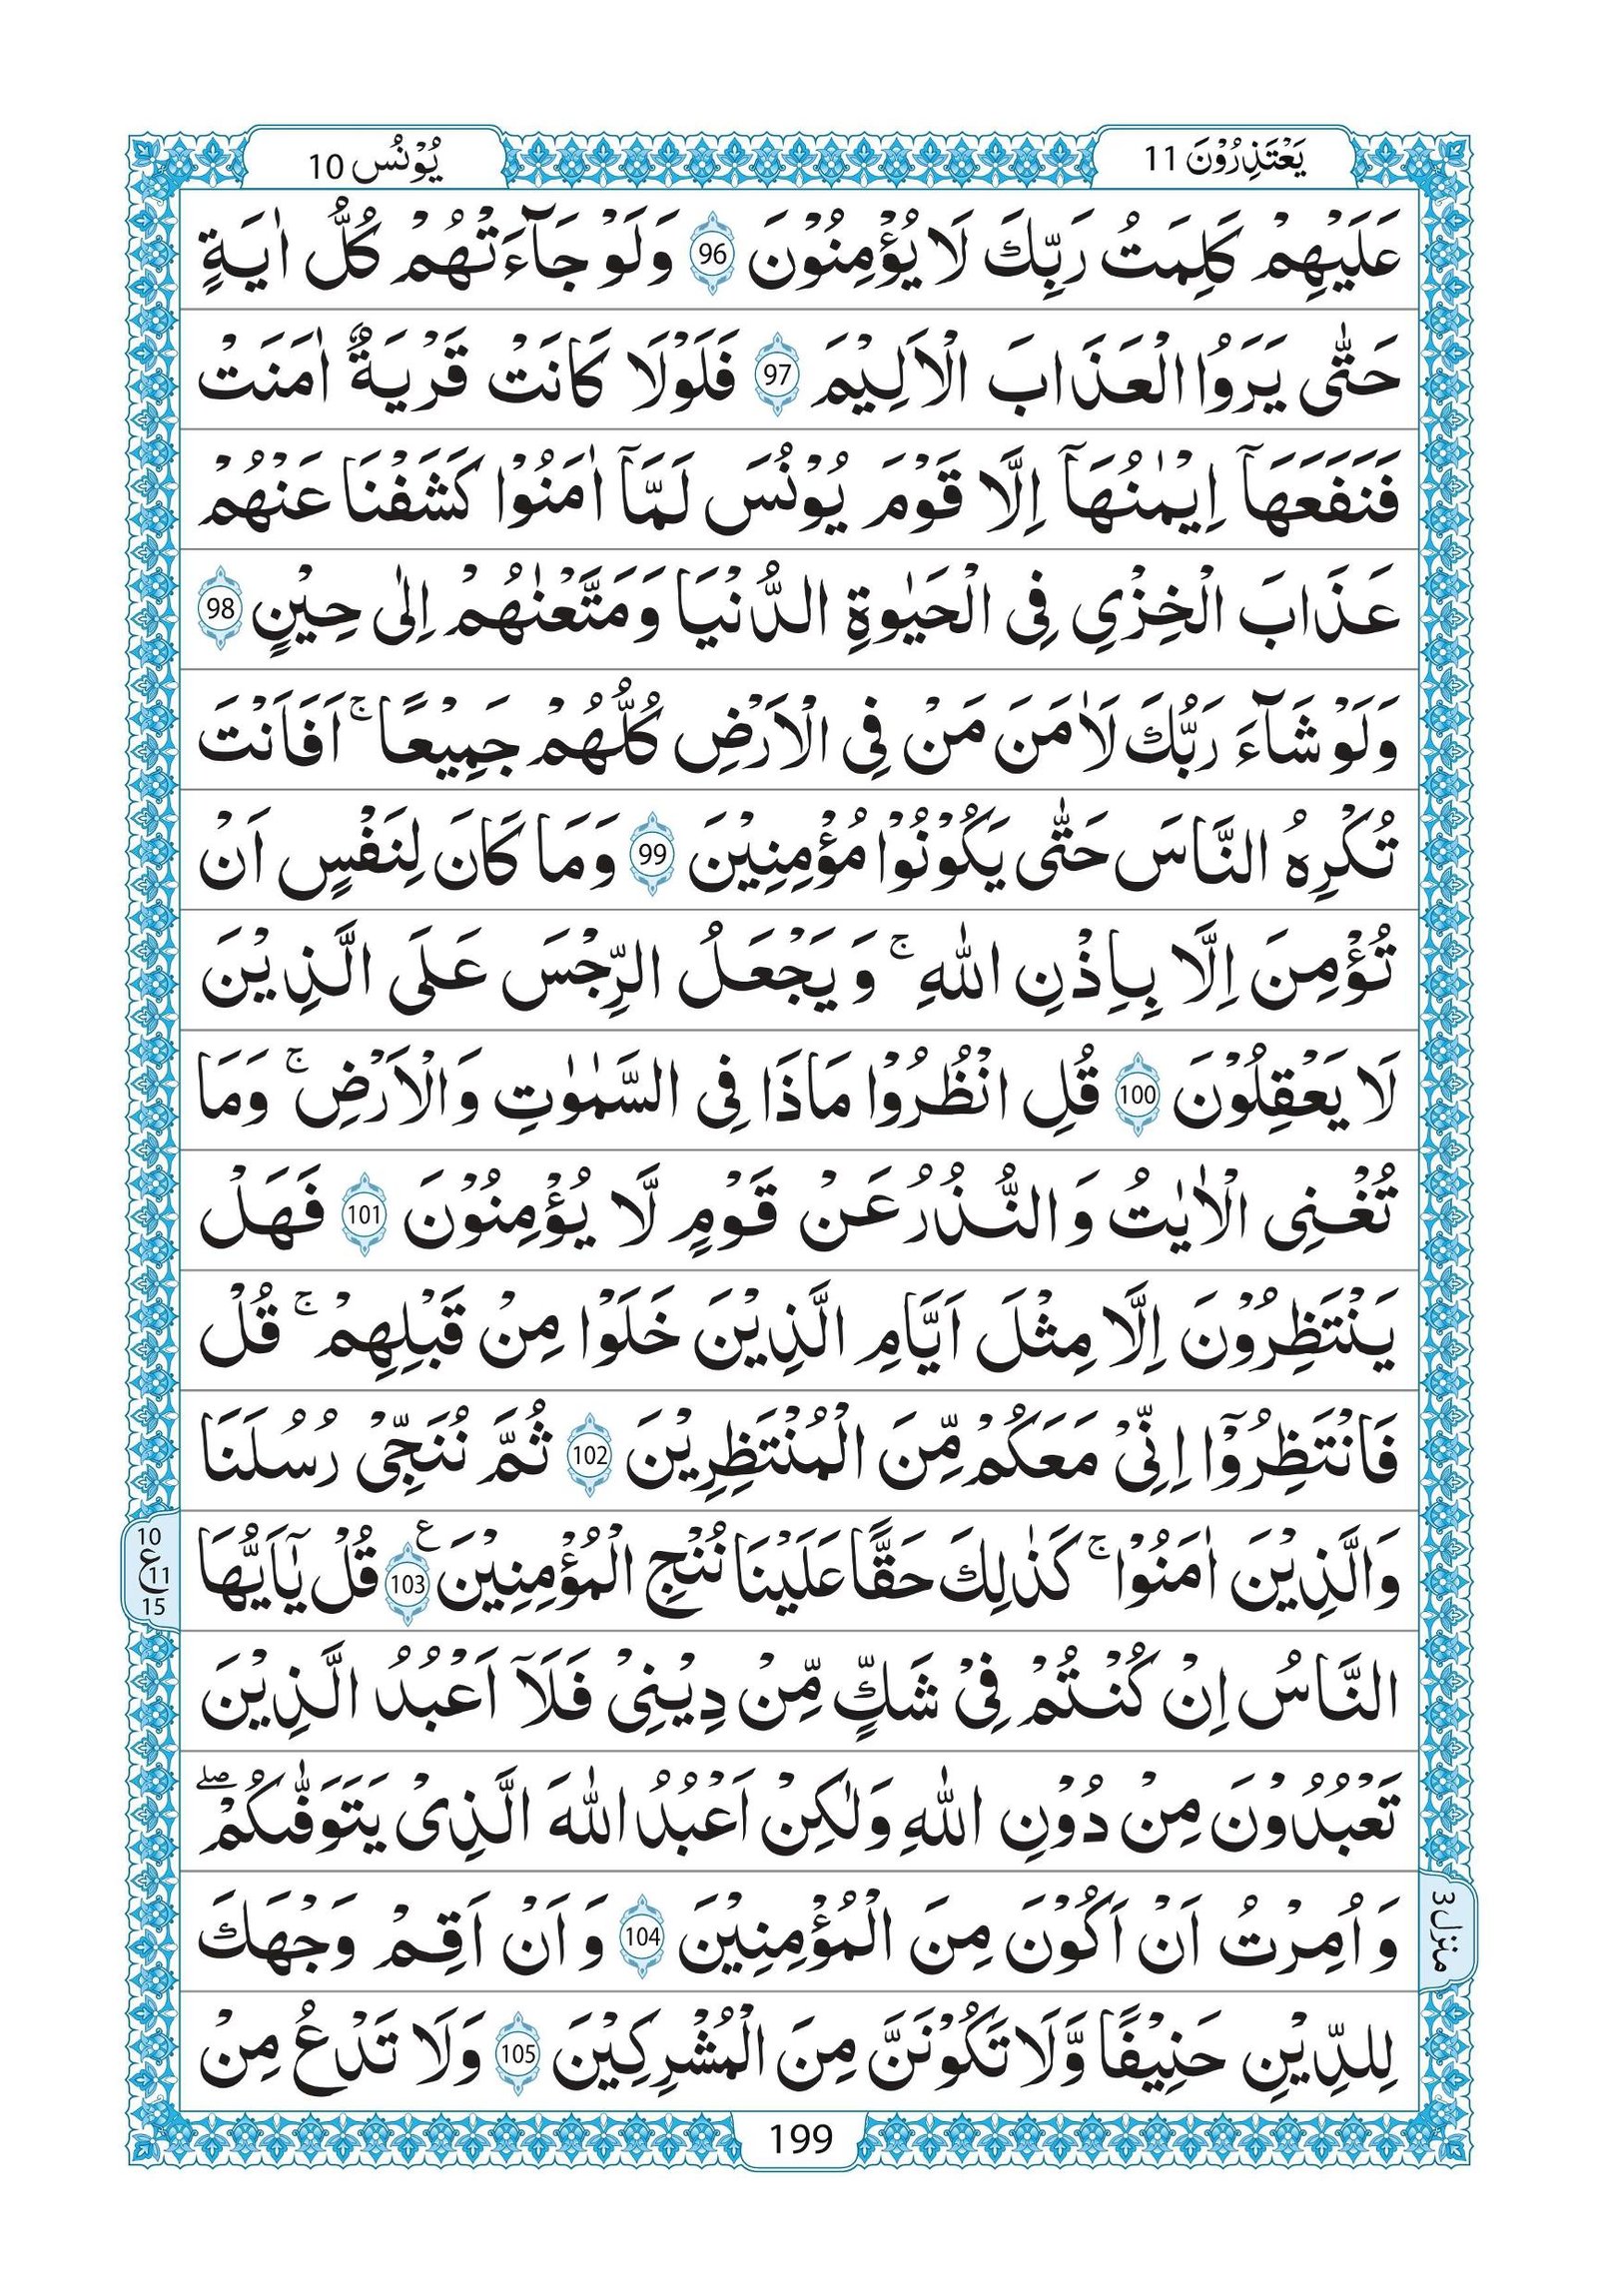 يَعْتَذِرُوْنَ 11
يُوْنُس 10
عَلَيْهِمْ كَلِمَتُ رَبِّكَ لَا يُؤْمِنُوْنَ 96 وَلَوْ جَآءَتْهُمْ كُلُّ اٰيَةٍ
حَتّٰى يَرَوُا الْعَذَابَ الْاَلِيْمَ 97 فَلَوْلَا كَانَتْ قَرْيَةٌ اٰمَنَتْ
فَنَفَعَهَآ اِيْمٰنُهَآ اِلَّا قَوْمَ يُوْنُسَ لَمَّآ اٰمَنُوْا كَشَفْنَا عَنْهُمْ
عَذَابَ الْخِزْيِ فِى الْحَيٰوةِ الدُّنْيَا وَمَتَّعْنٰهُمْ اِلٰى حِيْنٍ 98
وَلَوْ شَآءَ رَبُّكَ لَاٰمَنَ مَنْ فِى الْاَرْضِ كُلُّهُمْ جَمِيْعًا ۚ اَفَاَنْتَ
تُكْرِهُ النَّاسَ حَتّٰى يَكُوْنُوْا مُؤْمِنِيْنَ 99 وَمَا كَانَ لِنَفْسٍ اَنْ
تُؤْمِنَ اِلَّا بِاِذْنِ اللّٰهِ ۚ وَيَجْعَلُ الرِّجْسَ عَلَى الَّذِيْنَ
لَا يَعْقِلُوْنَ 100 قُلِ انْظُرُوْا مَاذَا فِى السَّمٰوٰتِ وَالْاَرْضِ ۚ وَمَا
تُغْنِى الْاٰيٰتُ وَالنُّذُرُ عَنْ قَوْمٍ لَّا يُؤْمِنُوْنَ 101 فَهَلْ
يَنْتَظِرُوْنَ اِلَّا مِثْلَ اَيَّامِ الَّذِيْنَ خَلَوْا مِنْ قَبْلِهِمْ ۚ قُلْ
فَانْتَظِرُوْٓا اِنِّىْ مَعَكُمْ مِّنَ الْمُنْتَظِرِيْنَ 102 ثُمَّ نُنَجِّىْ رُسُلَنَا
وَالَّذِيْنَ اٰمَنُوْا ۚ كَذٰلِكَ حَقًّا عَلَيْنَا نُنْجِ الْمُؤْمِنِيْنَ ع 103 قُلْ يٰٓاَيُّهَا
10
ع 11
15
النَّاسُ اِنْ كُنْتُمْ فِىْ شَكٍّ مِّنْ دِيْنِىْ فَلَآ اَعْبُدُ الَّذِيْنَ
تَعْبُدُوْنَ مِنْ دُوْنِ اللّٰهِ وَلٰكِنْ اَعْبُدُ اللّٰهَ الَّذِىْ يَتَوَفّٰىكُمْ ۖ
وَاُمِرْتُ اَنْ اَكُوْنَ مِنَ الْمُؤْمِنِيْنَ 104 وَاَنْ اَقِمْ وَجْهَكَ
منزل 3
لِلدِّيْنِ حَنِيْفًا وَّلَا تَكُوْنَنَّ مِنَ الْمُشْرِكِيْنَ 105 وَلَا تَدْعُ مِنْ
199